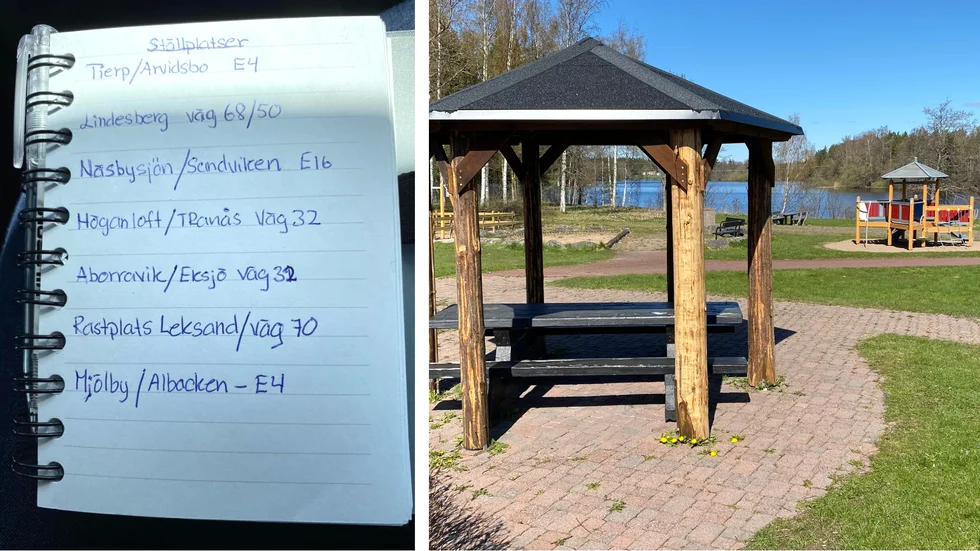 Ställplatser
Tierp/Arvidsbo E4
Lindesberg väg 68/50
Näsbysjön/Sandviken E16
Höganloft/TRanås Väg 32
Aborravik/Eksjö väg 32
Rastplats Leksand/väg 70
Mjölby/Albacken - E4